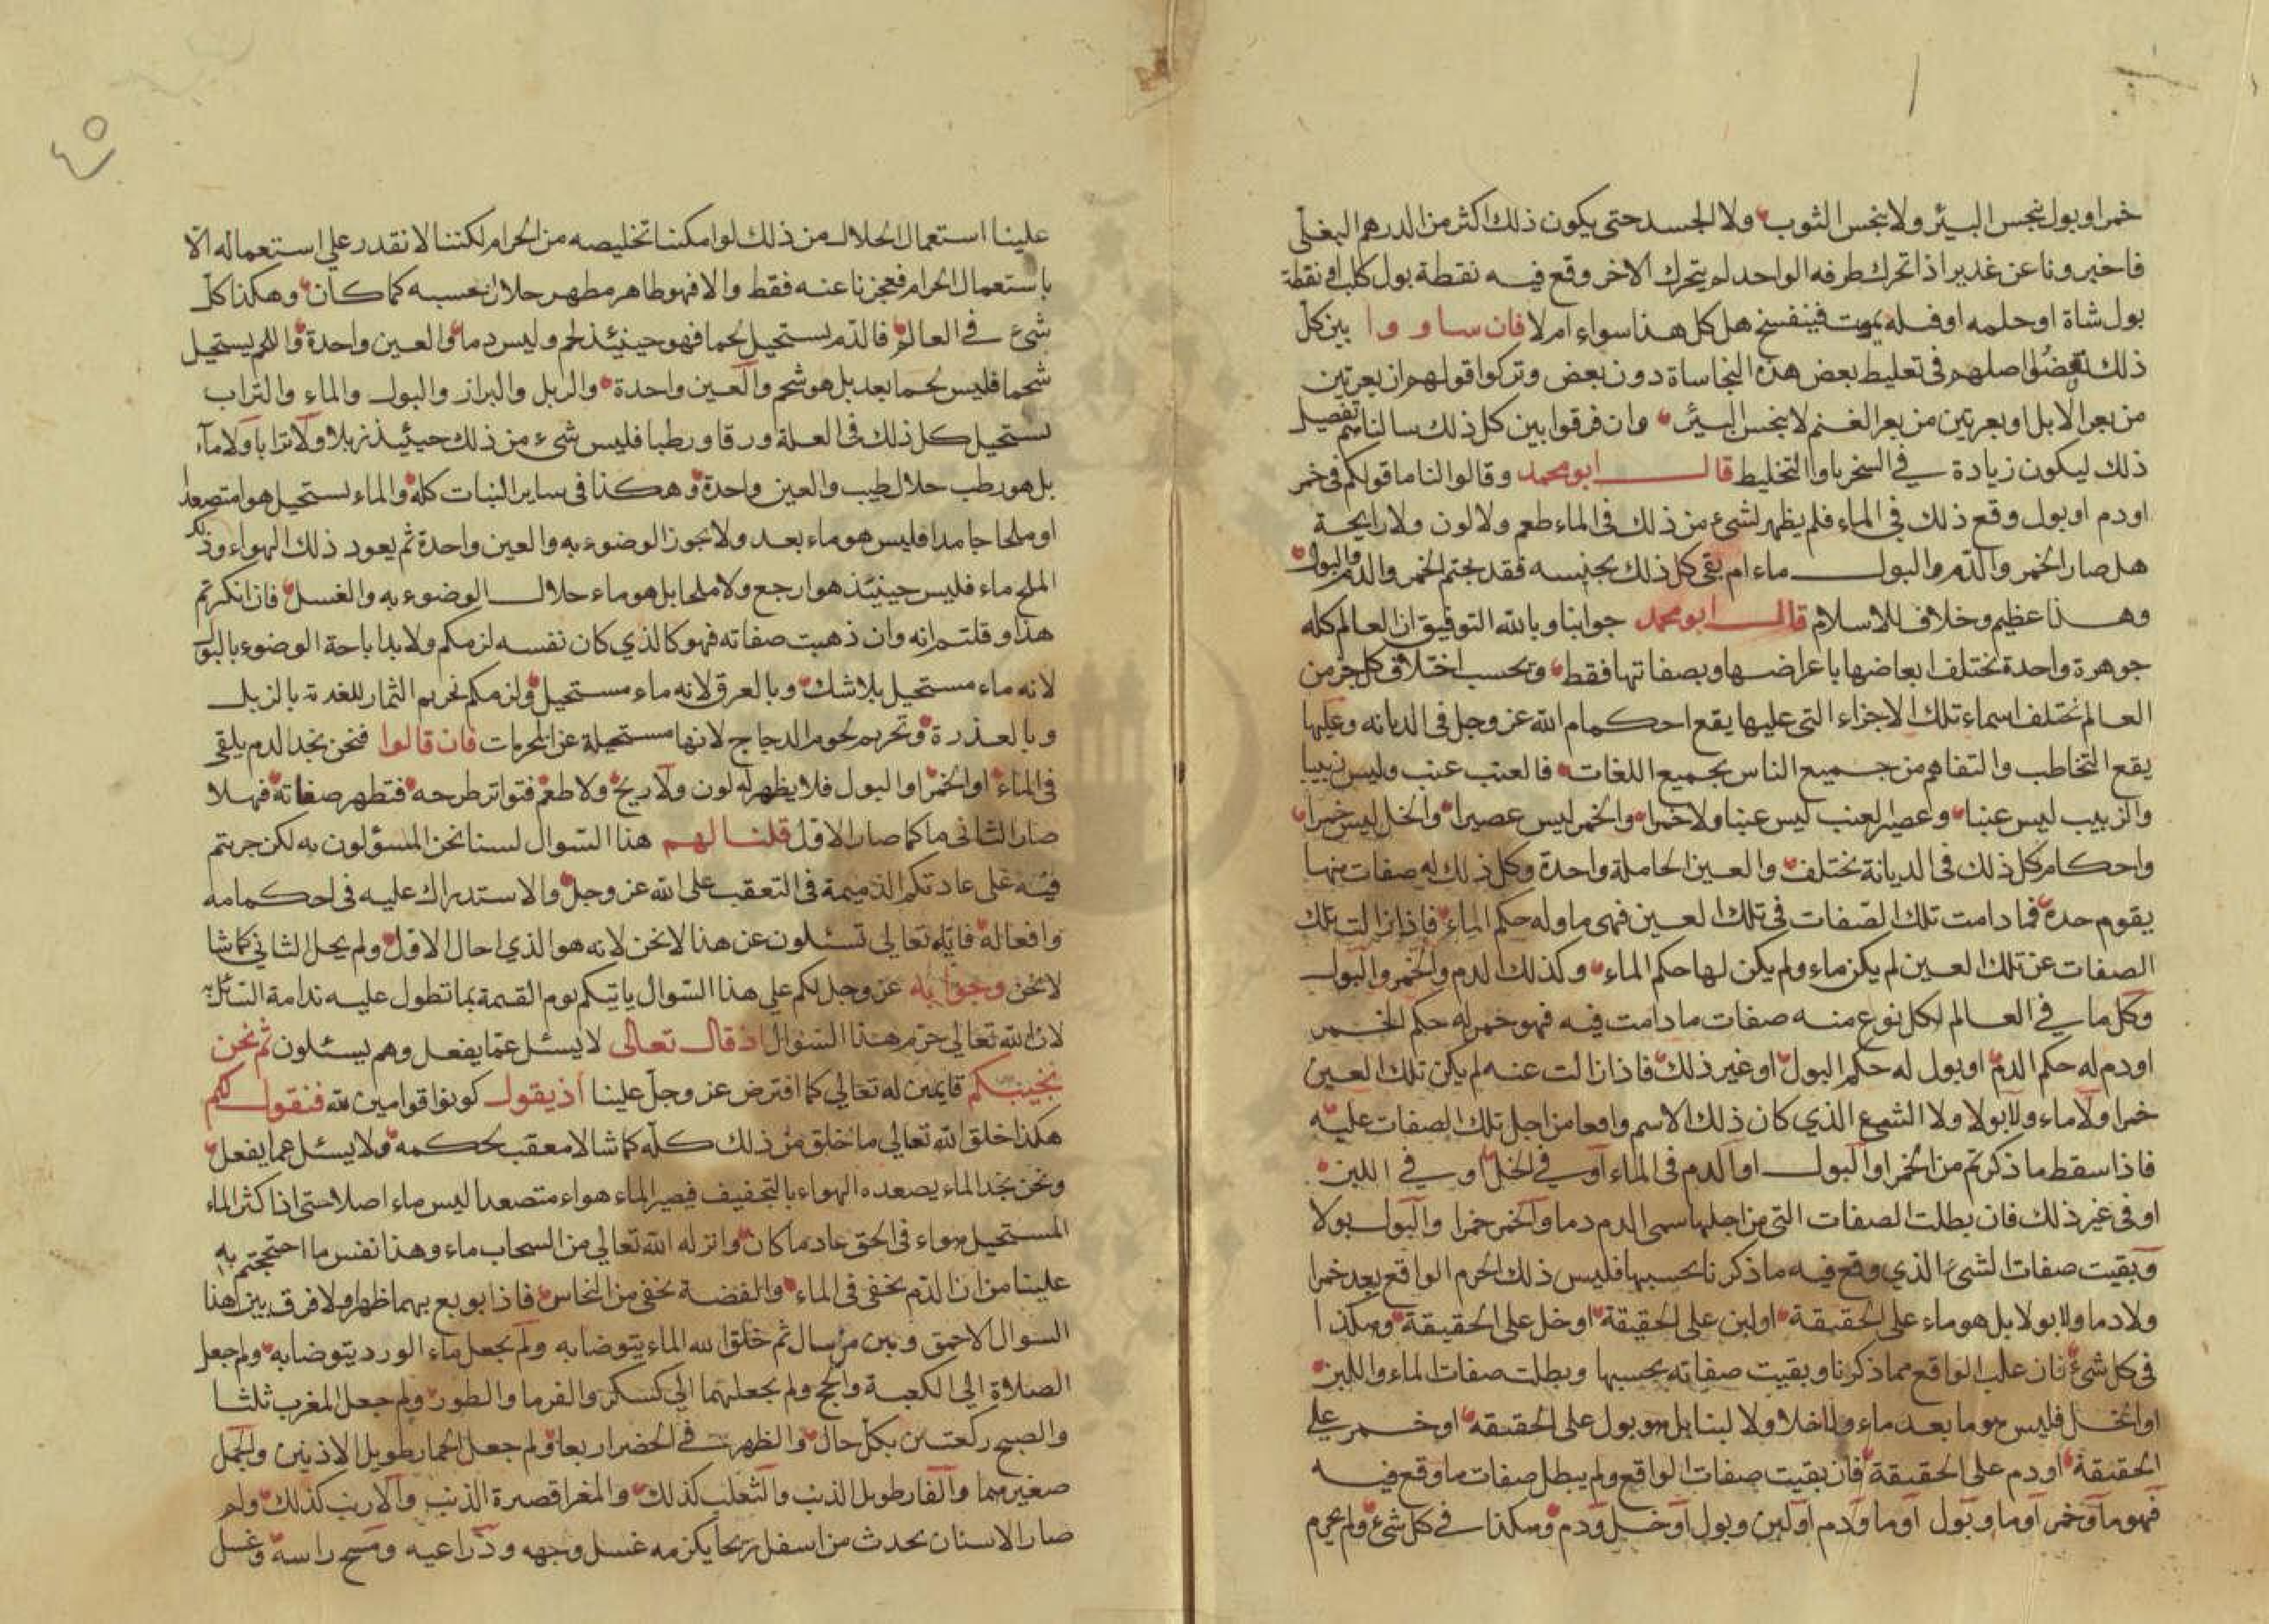 خمرا وبول ينجس البئر ولا ينجس الثوب ولا الجسد حتى يكون ذلك اكثر من الدرهم البغلّى
فاخبرونا عن غدير اذا تحرك طرفه الواحد لم يتحرك الاخر وقع فيه نقطة بول كلب او نقطة
بول شاة او حلمه او فـله يموت فينفسخ هل كل هذا سواء ام لا فان ساووا بين كلّ
ذلك نقضوا اصلهم فى تغليظ بعض هذه النجاساة دون بعض وتركوا قولهم ان بعرتين
من بعر الابل او بعرتين من بعر الغنم لا ينجس البئر وان فرقوا بين كل ذلك سالناهم تفصيل
ذلك ليكون زيادة في السخر باوا التخليط قال ابو محمد وقالوا لنا ما قولكم فى خمر
او دم او بول وقع ذلك في الماء فلم يظهر لشيء من ذلك فى الماء طعم ولا لون ولا رايحة
هل صار الخمر والدّم والبول ماء ام بقى كل ذلك بجنسه فقد بحتم الخمر والدم والبول
وهذا عظيم وخلاف للاسلام قال ابو محمد جوابنا وبالله التوفيق ان العالم كله
جوهرة واحدة تختلف ابعاضها باعراضها وبصفاتها فقط وبحسب اختلاف كل جز من
العالم تختلف اسماء تلك الاجزاء التى عليها يقع احكام الله عز وجل فى الديانه وعليها
يقع التخاطب والتفاهم من جميع الناس بجميع اللغات فالعنب عنب وليس زبيبا
والزبيب ليس عنبا وعصير العنب ليس عنبا ولا خمرا والخمر ليس عصيرا والخل ليس خمرا
واحكام كل ذلك فى الديانة تختلف والعين الحاملة واحدة وكل ذلك له صفات منها
يقوم حده فما دامت تلك الصّفات فى تلك العين فهى ما وله حكم الماء فاذا زالت تلك
الصفات عن تلك العين لم يكن ماء ولم يكن لها حكم الماء وكذلك الدم والخمر والبول
وكل ما في العالم لكل نوع منه صفات ما دامت فيه فهو خمر له حكم الخمر
او دم له حكم الدم او بول له حكم البول او غير ذلك فاذا زالت عنه لم يكن تلك العين
خمرا ولا ماء ولا بولا ولا الشىء الذي كان ذلك الاسم واقعا من اجل تلك الصفات عليه
فاذا سقط ما ذكرتم من الخمر او البول او الدم فى الماء او في الخل او في اللبن
او فى غير ذلك فان بطلت الصفات التى من اجلها سمى الدم دما والخمر خمرا والبول بولا
وبقيت صفات الشىء الذي وقع فيه ما ذكرنا بحسبها فليس ذلك الجرم الواقع بعد خمرا
ولا دما ولا بولا بل هو ماء على الحقيقة او لبن على الحقيقة او خل على الحقيقة وهكذا
فى كل شىء فان غلب الواقع مما ذكرنا وبقيت صفاته بحسبها وبطلت صفات الماء واللبن
او الخل فليس هو ما بعد ماء ولا خلا ولا لبنا بل هو بول على الحقيقه او خمر علي
الحقيقة او دم على الحقيقة فان بقيت صفات الواقع ولم يبطل صفات ما وقع فيه
فهو ما وخمر او ما وبول او ما ودم او لبن وبول او خل ودم وهكذا في كل شىء ولم يحرم
علينا استعمال الحلال من ذلك لو امكننا تخليصه من الحرام لكننا لا نقدر علي استعماله الّا
باستعمال الحرام فعجزنا عنه فقط والا فهو طاهر مطهر حلال بحسبه كما كان وهكذا كلّ
شىء في العالم فالدّم يستحيل لحما فهو حينئذ لحم وليس دما والعين واحدة واللحم يستحيل
شحما فليس لحما بعد بل هو شحم والعين واحدة والزبل والبراز والبول والماء والتراب
يستحيل كل ذلك فى الغلة ورقا ورطبا فليس شىء من ذلك حينئذ زبلا ولا ترابا ولا ماء
بل هو رطب حلال طيب والعين واحدة وهكذا فى ساير النبات كله والماء يستحيل هوا متصعدا
او ملحا جامدا فليس هو ماء بعد ولا يجوز الوضوء به والعين واحدة ثم يعود ذلك الهواء وذلك
الملح ماء فليس حينئذ هوا رجع ولا ملحا بل هو ماء حلال الوضوء به والغسل فان انكرتم
هذا وقلتم انه وان ذهبت صفاته فهو كالذي كان نفسه لزمكم ولا بد اباحة الوضوء بالبول
لانه ماء مستحيل بلا شك وبالعرق لانه ماء مستحيل ولزمكم تحريم الثمار المغذية بالزبل
وبالعذرة وتحريم لحوم الدجاج لانها مستحيلة عن المحرمات فان قالوا فنحن نجد الدم يلقى
فى الماء او الخمر او البول فلا يظهر له لون ولا ريح ولا طعم فتواتر طرحه فتظهر صفاته فهلا
صار الثانى ما كما صار الاول قلنا لهم هذا السوال لسنا نحن المسؤلون به لكن جريتم
فيه على عادتكم الذميمة فى التعقب على الله عز وجل والاستدراك عليه فى احكامه
وافعاله فايّاه تعالى تسئلون عن هذا لا نحن لانه هو الذي احال الاول ولم يحل الثاني كما شا
لا نحن وجوابه عز وجل لكم علي هذا السوال ياتيكم يوم القيمة بما تطول عليه ندامة السائل به
لان الله تعالى حرّم هذا السوال اذ قال تعالى لا يسئل عمّا يفعل وهم يسئلون ثم نحن
نجيبكم قايمين له تعالي كما افترض عز وجلّ علينا اذ يقول كونوا قوامين لله فنقول لكم
هكذا خلق الله تعالي ما خلق من ذلك كلّه كما شا لا معقب لحكمه ولا يسئل عما يفعل
ونحن نجد الماء يصعده الهواء بالتجفيف فيصير الماء هواء متصعدا ليس ماء اصلا حتى اذا كثر الماء
المستحيل هواء فى الجو عاد ما كان وانزله الله تعالي من السحاب ماء وهذا نفس ما احتججتم به
علينا من ان الدّم يخفى فى الماء والفضة تخفى من النحاس فاذا بويع بهما ظهرا ولا فرق بين هذا
السوال الاحمق وبين من سال ثم خلق الله الماء يتوضا به ولم يجعل ماء الورد يتوضا به ولم جعل
الصلاة الي الكعبة والحج ولم يجعلهما الي كسكر والفرما والطور ولم جعل المغرب ثلثا
والصبح ركعتين بكل حال والظهر في الحضر اربعا ولم جعل الحمار طويل الاذنين والجمل
صغيرهما والفار طويل الذنب والثعلب كذلك والمعزا قصيرة الذنب والارنب كذلك ولم
صار الانسان يحدث من اسفل ريحا يلزمه غسل وجهه وذراعيه ومسح راسه وغسل